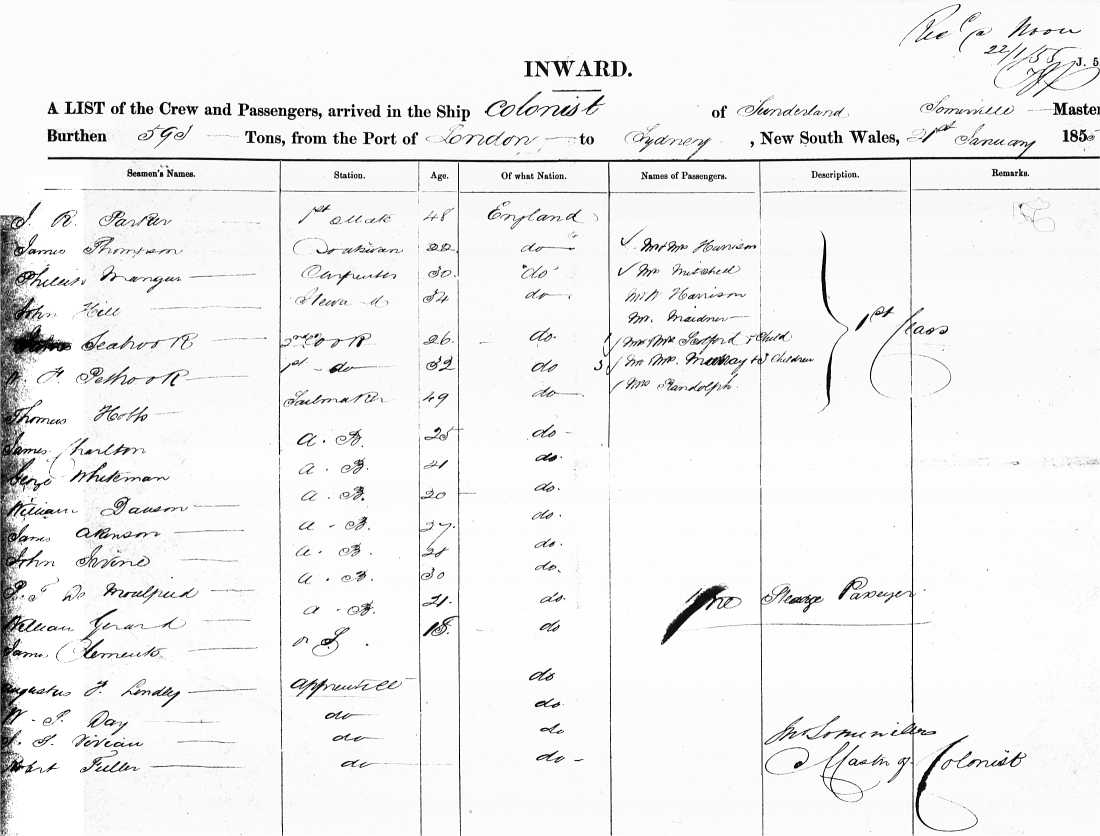 Noon
22/1/55
J. 5
INWARD.
A LIST of the Crew and Passengers, arrived in the Ship Colonist of Sunderland Somerville Master
Burthen 595 Tons, from the Port of London to Sydney, New South Wales, 21st January 1855
Seamen's Names. Station. Age. Of what Nation. Names of Passengers. Description. Remarks.
J. R. Parker 1st Mate 48 England
James Thompson 22 do Mr & Mrs Harrison
Mangus Carpenter 30 do Mr Mitchell
John Hill Steward 34 do Mr W Harrison
Mr.
Seabrook 2nd Cook 26 do 1 Mr & Mrs & Child 1st Class
W. F. Pethrook 1st do 32 do 3 Mr Mrs Murray & 3 Children
Thomas Hobbs Sailmaker 49 do Mrs Randolph
James Charlton A. B. 25 do
George Whiteman A. B. 21 do
William Dawson A. B. 20 do
James Akinson A. B. 27 do
John Irvine A. B. 28 do
A. B. 30 do
William Gerard A. B. 21 do Steerage Passenger
James Clements or S. 18 do
Augustus F. Lendley Apprentice do
W. S. Day do do
Vivian do do Jno Somerville
Robert Fuller do do Master of Colonist